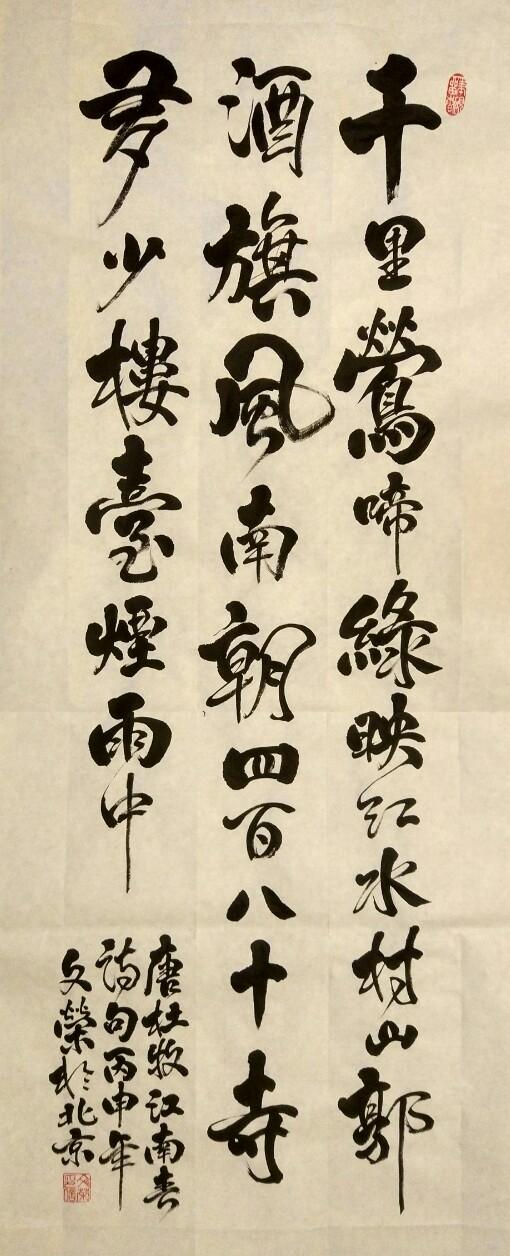 千里鶯啼綠映江水村山郭
酒旗風南朝四百八十寺
多少樓臺煙雨中
唐杜牧江南春
詩句丙申年
文榮於北京